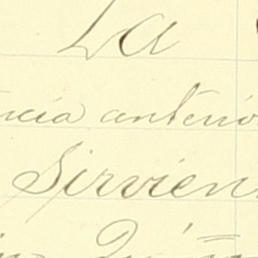 La
ncia anterio
Sirvien